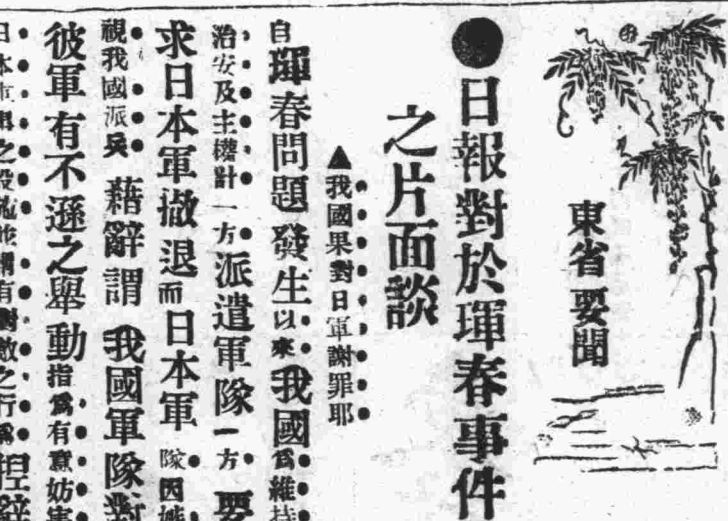 東省要聞
●日報對於琿春事件
之片面談
▲我國果對日軍謝罪耶
自琿春問題發生以來我國爲維持
治安及主權計一方派遣軍隊一方要
求日本軍撤退而日本軍隊因
視我國派兵藉辭謂我國軍隊對
彼軍有不遜之舉動指爲有意妨害
日本軍之設施並謂有對敵之行爲捏辭